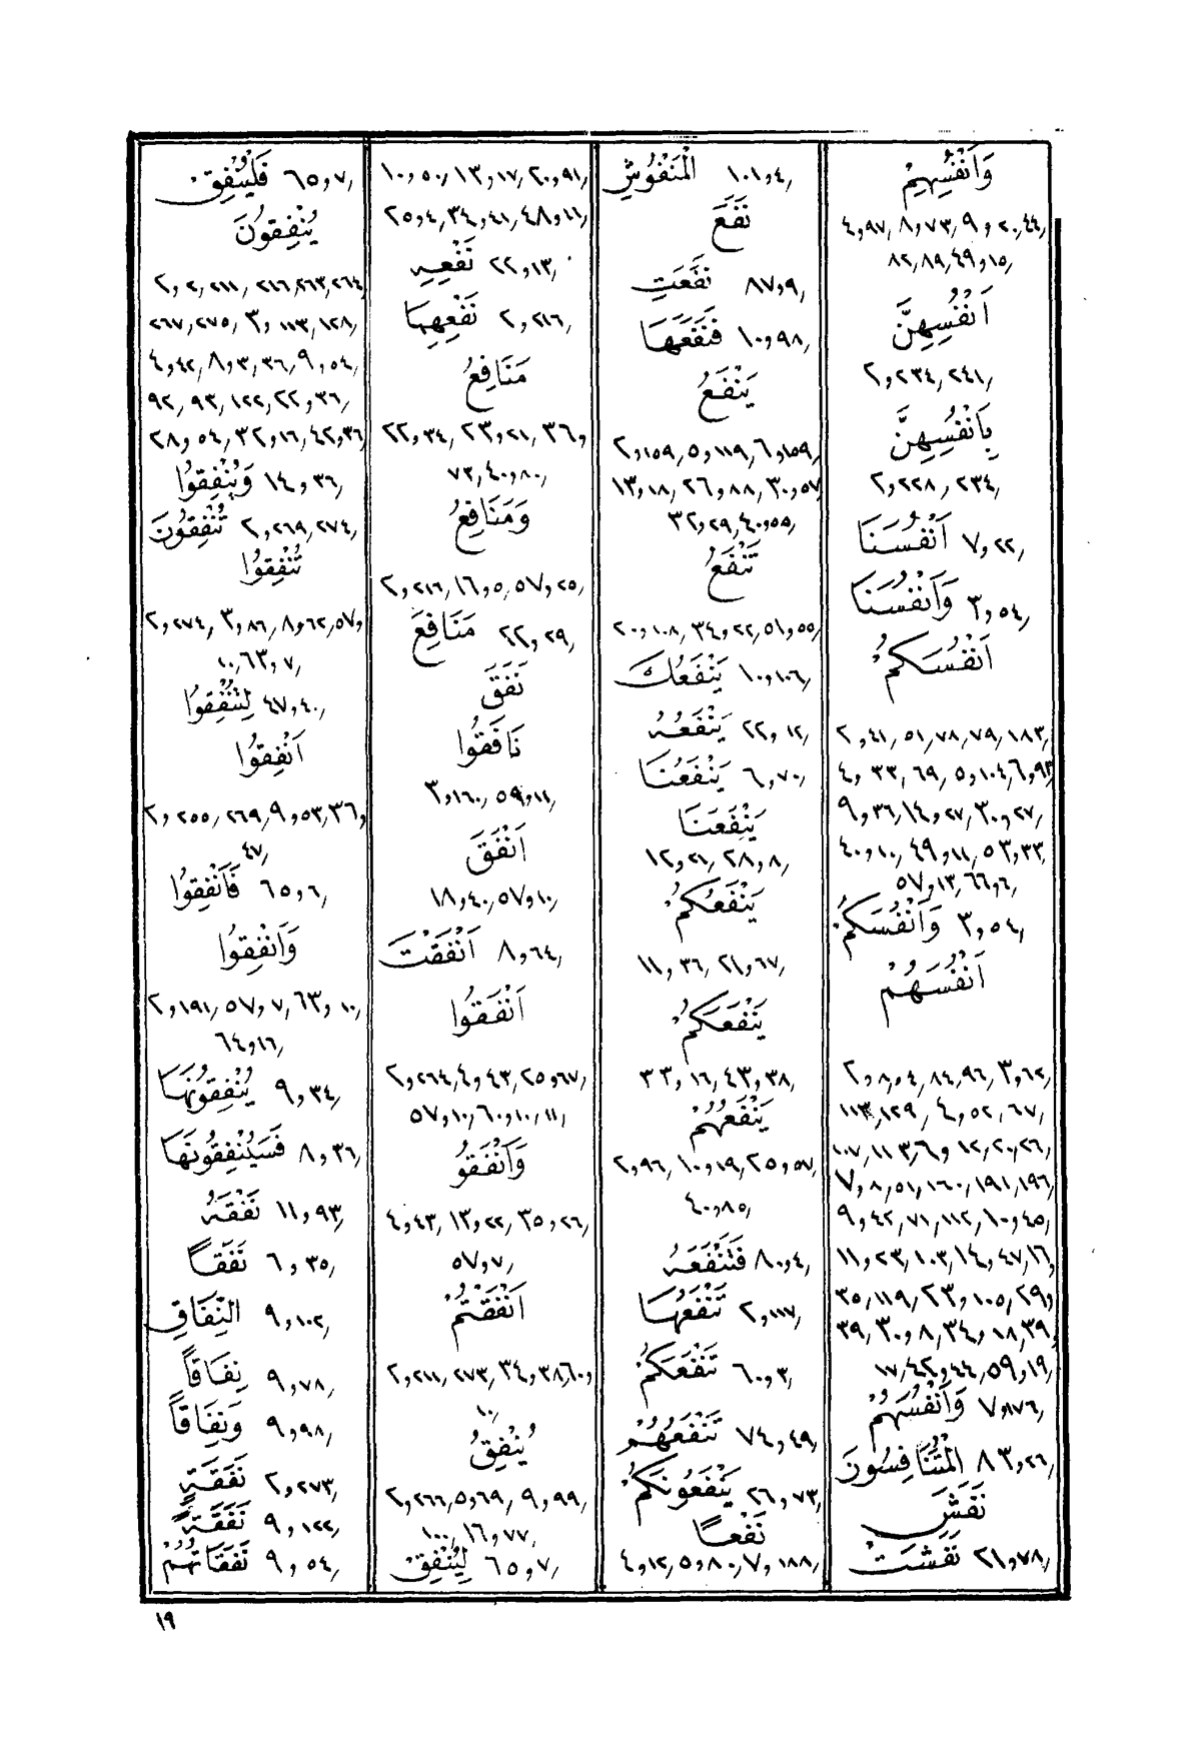 وَاَنْفُسِهِمْ
٤و٩٧, ٨و٧٣, ٩و٢٠,٤٤,
٨٢,٨٩, ٤٩و١٥,
اَنْفُسِهِنَّ
٢و٢٣٤, ٢٤١,
بِاَنْفُسِهِنَّ
٢و٢٢٨, ٢٣٤,
اَنْفُسَنَا ٧و٢٢,
وَاَنْفُسَنَا ٣و٥٤,
اَنْفُسَكُمْ
٢و٤١, ٥١, ٧٨, ٧٩, ١٨٣,
٤و ٣٣, ٦٩, ٥و١٠٤, ٦و٩٣
٩و٣٦, ١٤و٢٧, ٣٠و٢٧,
٤٠و١٠, ٤٩و١١, ٥٣و٣٣,
٥٧و١٣, ٦٦و٦,
وَاَنْفُسَكُمْ ٣و٥٤,
اَنْفُسَهُمْ
٢و٨و٤, ٨٤, ٩٦, ٣و٦٢,
١١٣, ١٢٩, ٤و٥٢, ٦٧,
١٠٧, ١١٣, ٦و ١٢, ٢٠,٢٦,
٧و٨, ٥١, ١٦٠, ١٩١, ١٩٦,
٩و٤٢, ٧١, ١١٢, ١٠و٤٥,
١١و٢٣, ١٠٣, ١٤و٤٧, ١٦و
٣٥, ١١٩, ٢٣و١٠٥, ٢٩و
٣٩, ٣٠و٨, ٣٤و١٨, ٣٩,
١٧, ٤٢و٤٤, ٥٩و١٩,
وَاَنْفُسَهُمْ ٧و١٧٦,
الْمُتَنَافِسُونَ ٨٣و٢٦,
نَفَشَ
نَفَشَتْ ٢١و٧٨,
الْمَنْفُوشِ ١٠١و٤,
نَفَعَ
نَفَعَتِ ٨٧و٩,
فَنَفَعَهَا ١٠و٩٨,
يَنْفَعُ
٢و١٥٩, ٥و١١٩, ٦و١٥٩,
١٣و١٨, ٢٦و٨٨, ٣٠و٥٧
٣٢و٢٩, ٤٠و٥٥,
تَنْفَعُ
٢٠و١٠٨, ٣٤و٢٢, ٥١و٥٥,
يَنْفَعُكَ ١٠و١٠٦,
يَنْفَعُهُ ٢٢و١٢,
يَنْفَعُنَا ٦و٧٠,
يَنْفَعَنَا
١٢و٢١, ٢٨و٨,
يَنْفَعُكُمْ
١١و٣٦, ٢١و٦٧,
يَنْفَعَكُمْ
٣٣و١٦, ٤٣و٣٨,
يَنْفَعُهُمْ
٢و٩٦, ١٠و١٩, ٢٥و٥٧,
٤٠و٨٥,
فَتَنْفَعَهُ ٨٠و٤,
تَنْفَعُهَا ٢و١١٧,
تَنْفَعَكُمْ ٦٠و٣,
تَنْفَعُهُمْ ٧٤و٤٩,
يَنْفَعُونَكُمْ ٢٦و٧٣,
نَفْعًا
٤و١٢, ٥و٨٠, ٧و١٨٨,
١٠و٥٠, ١٣و١٧, ٢٠و٩١,
٢٥و٤, ٣٤و٤١, ٤٨و١١,
نَفْعِهِ ٢٢و١٣,
نَفْعِهِمَا ٢و٢١٦,
مَنَافِعُ
٢٢و٣٤, ٢٣و٢١, ٣٦و
٧٣, ٤٠و٨٠,
وَمَنَافِعُ
٢و٢١٦, ١٦و٥, ٥٧و٢٥,
مَنَافِعَ ٢٢و٢٩,
نَفَقَ
نَافَقُوا
٣و١٦٠, ٥٩و١١,
اَنْفَقَ
١٨و٤٠, ٥٧و١٠,
اَنْفَقْتَ ٨و٦٤,
اَنْفَقُوا
٢و٢٦٤, ٤و٤٣, ٢٥و٦٧,
٥٧و١٠, ٦٠و١٠, ١١,
وَاَنْفَقُو
٤و٤٣, ١٣و٢٢, ٣٥و٢٦,
٥٧و٧,
اَنْفَقْتُمْ
٢و٢١١, ٢٧٣, ٣٤و٣٨,٦٠و
١٠,
يُنْفِقُ
٢و٢٦٦,٥و٦٩, ٩و٩٩,
١٠٠, ١٦و٧٧,
لِيُنْفِقْ ٦٥و٧,
فَلْيُنْفِقْ ٦٥و٧,
يُنْفِقُونَ
٢و٢, ٢١١, ٢١٦,٢٦٣,٢٦٤,
٢٦٧,٢٧٥, ٣و١١٣,١٢٨,
٤و٤٢, ٨و٣, ٣٦, ٩و٥٤,
٩٢, ٩٣, ١٢٢, ٢٢و٣٦,
٢٨و٥٤, ٣٢و١٦, ٤٢و٣٦,
وَيُنْفِقُوا ١٤و٣٦,
تُنْفِقُونَ ٢و٢٦٩,٢٧٤,
تُنْفِقُوا
٢و٢٧٤, ٣و٨٦, ٨و٦٢,٥٧و
١٠, ٦٣و٧,
لِتُنْفِقُوا ٤٧و٤٠,
اَنْفِقُوا
٢و٢٥٥, ٢٦٩, ٩و٥٣,٣٦و
٤٧,
فَاَنْفِقُوا ٦٥و٦,
وَاَنْفِقُوا
٢و١٩١, ٥٧و٧, ٦٣و١٠,
٦٤و١٦,
يُنْفِقُونَهَا ٩و٣٤,
فَسَيُنْفِقُونَهَا ٨و٣٦,
نَفَقَةُ ١١و٩٣,
نَفَقًا ٦و٣٥,
النِّفَاقِ ٩و١٠٢,
نِفَاقًا ٩و٧٨,
وَنِفَاقًا ٩و٩٨,
نَفَقَةٍ ٢و٢٧٣,
نَفَقَةً ٩و١٢٢,
نَفَقَاتُهُمْ ٩و٥٤,
١٩